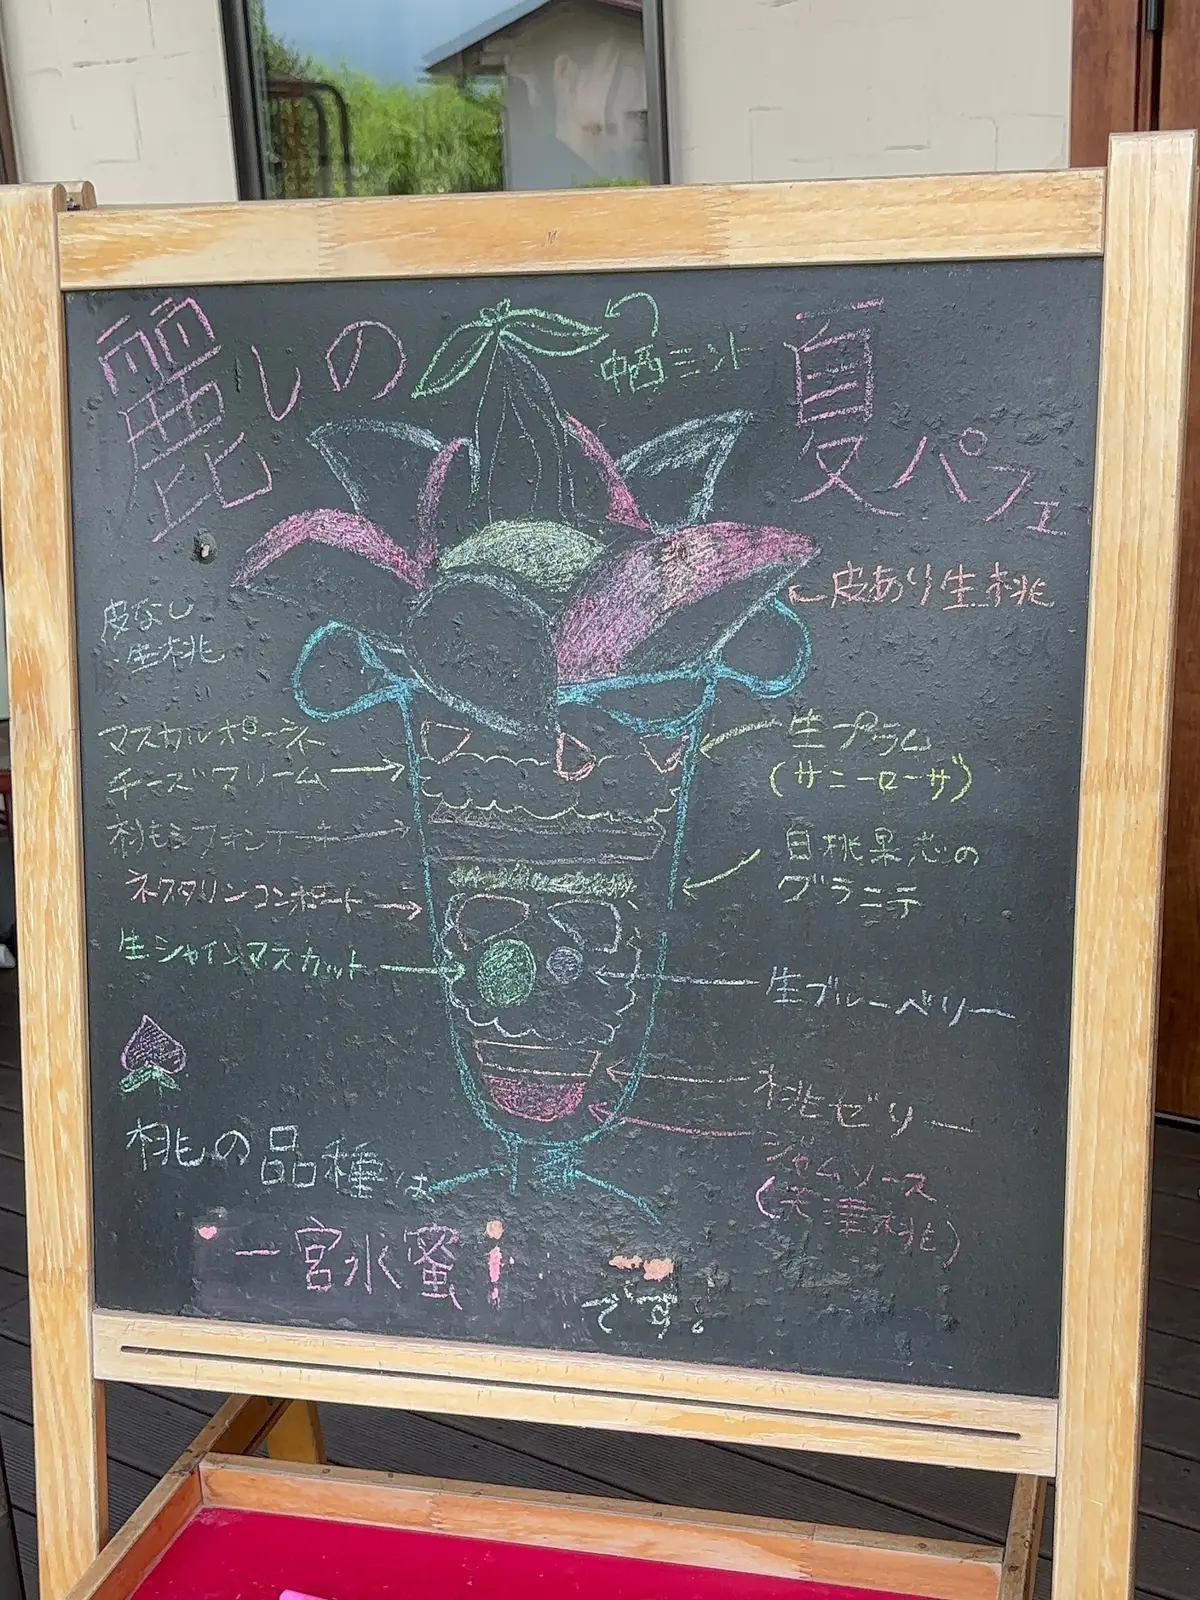 麗しの
夏パフェ
中西ミント
皮あり生桃
皮なし
生桃
マスカルポーネ
チーズクリーム
桃もシフォンケーキ
ネクタリンコンポート
生シャインマスカット
生プラム
(サニーローザ)
白桃果恋の
グラニテ
生ブルーベリー
桃ゼリー
ジャムソース
桃の品種は
一宮水蜜
です。